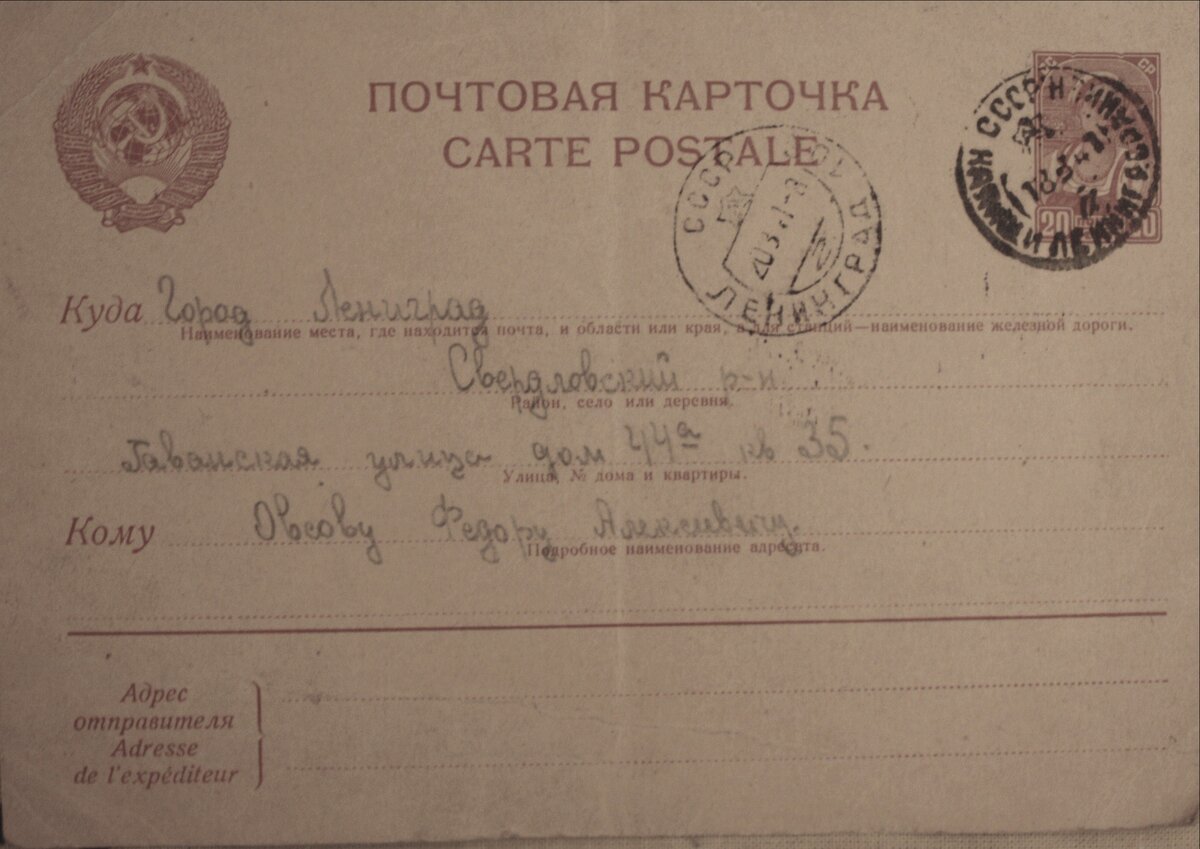 ПОЧТОВАЯ КАРТОЧКА
CARTE POSTALE
СССР
ЛЕНИНГРАД
СССР
20
Куда Город Лениград
Наименование места, где находится почта, и области или края, а для станций—наименование железной дороги.
Свердловский р-н
Район, село или деревня.
Гаванская улица дом 44а кв 35.
Улица, № дома и квартиры.
Кому Овсову Федору Алексивичу.
Подробное наименование адресата.
Адрес
отправителя
Adresse
de l'expéditeur